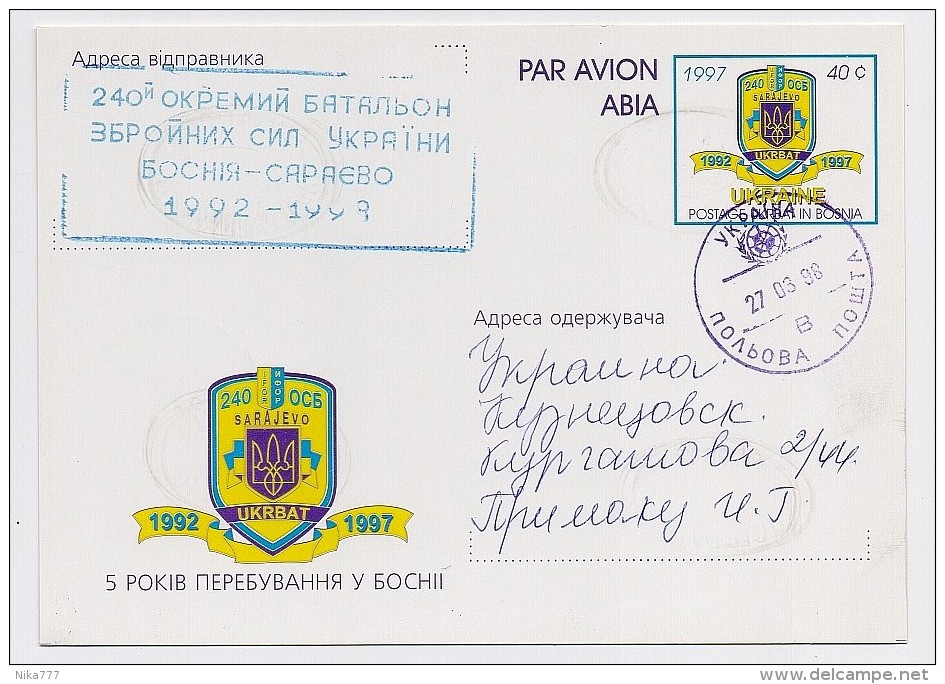 Адреса відправника
240й ОКРЕМИЙ БАТАЛЬОН
ЗБРОЙНИХ СИЛ УКРАЇНИ
БОСНІЯ-САРАЄВО
1992 - 1998
PAR AVION
АВІА
1997
40 ¢
240 ОСБ
SARAJEVO
UKRBAT
1992 1997
UKRAINE
POSTAGE UKRBAT IN BOSNIA
УКРАЇНА
27 03 98
В
ПОЛЬОВА ПОШТА
Адреса одержувача
Украина.
Кузнецовск.
Кургашова 2/44.
Примаку И.Г
IFOR ИФОР
240 ОСБ
SARAJEVO
UKRBAT
1992 1997
5 РОКІВ ПЕРЕБУВАННЯ У БОСНІІ
Nika777
www.delcampe.net